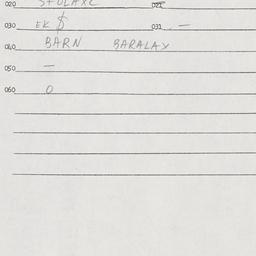 020 021
030 EK $ 031 —
040 BARN BARALAX
050 —
060 0